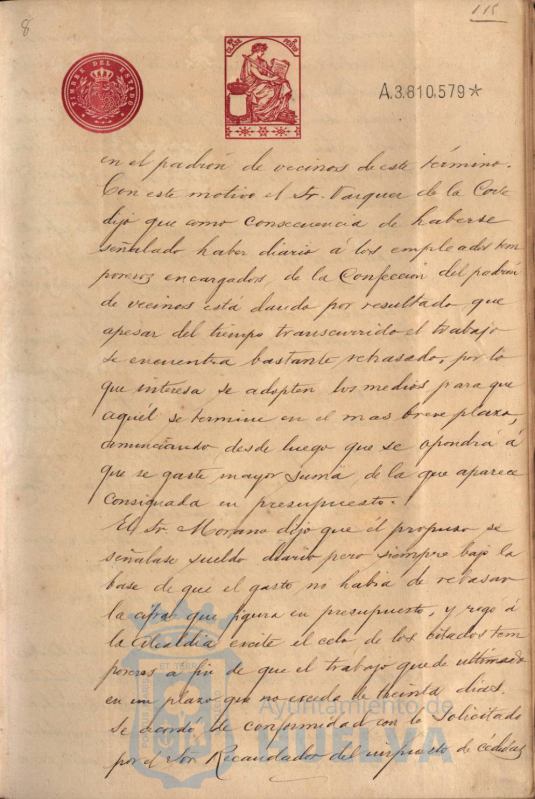 8
115
TIMBRE DEL ESTADO
CLASE
A.3.810.579*
en el padrón de vecinos de este término.
Con este motivo el Sr. Vazquez de la Corte
dijo que como consecuencia de haberse
señalado haber diario á los empleados tem
poreros encargados, de la Confección del padrón
de vecinos está dando por resultado que
apesar del tiempo transcurrido el trabajo
se encuentra bastante retrasado, por lo
que interesa se adopten los medios para que
aquél se termine en el mas breve plazo,
anunciando desde luego que se opondrá á
que se gaste mayor suma, de la que aparece
consignada en presupuesto.
El Sr. Morano dijo que él propuso se
señalase sueldo diario pero siempre bajo la
base de que el gasto no habia de rebasar
la cifra que figura en presupuesto, y rogó á
la Alcaldia excite el celo de los citados tem
poreros a fin de que el trabajo quede ultimado
en un plazo que no exceda de treinta dias.
Se acordó de conformidad con lo Solicitado
por el Sor Recaudador del impuesto de cédulas
Ayuntamiento de
HUELVA